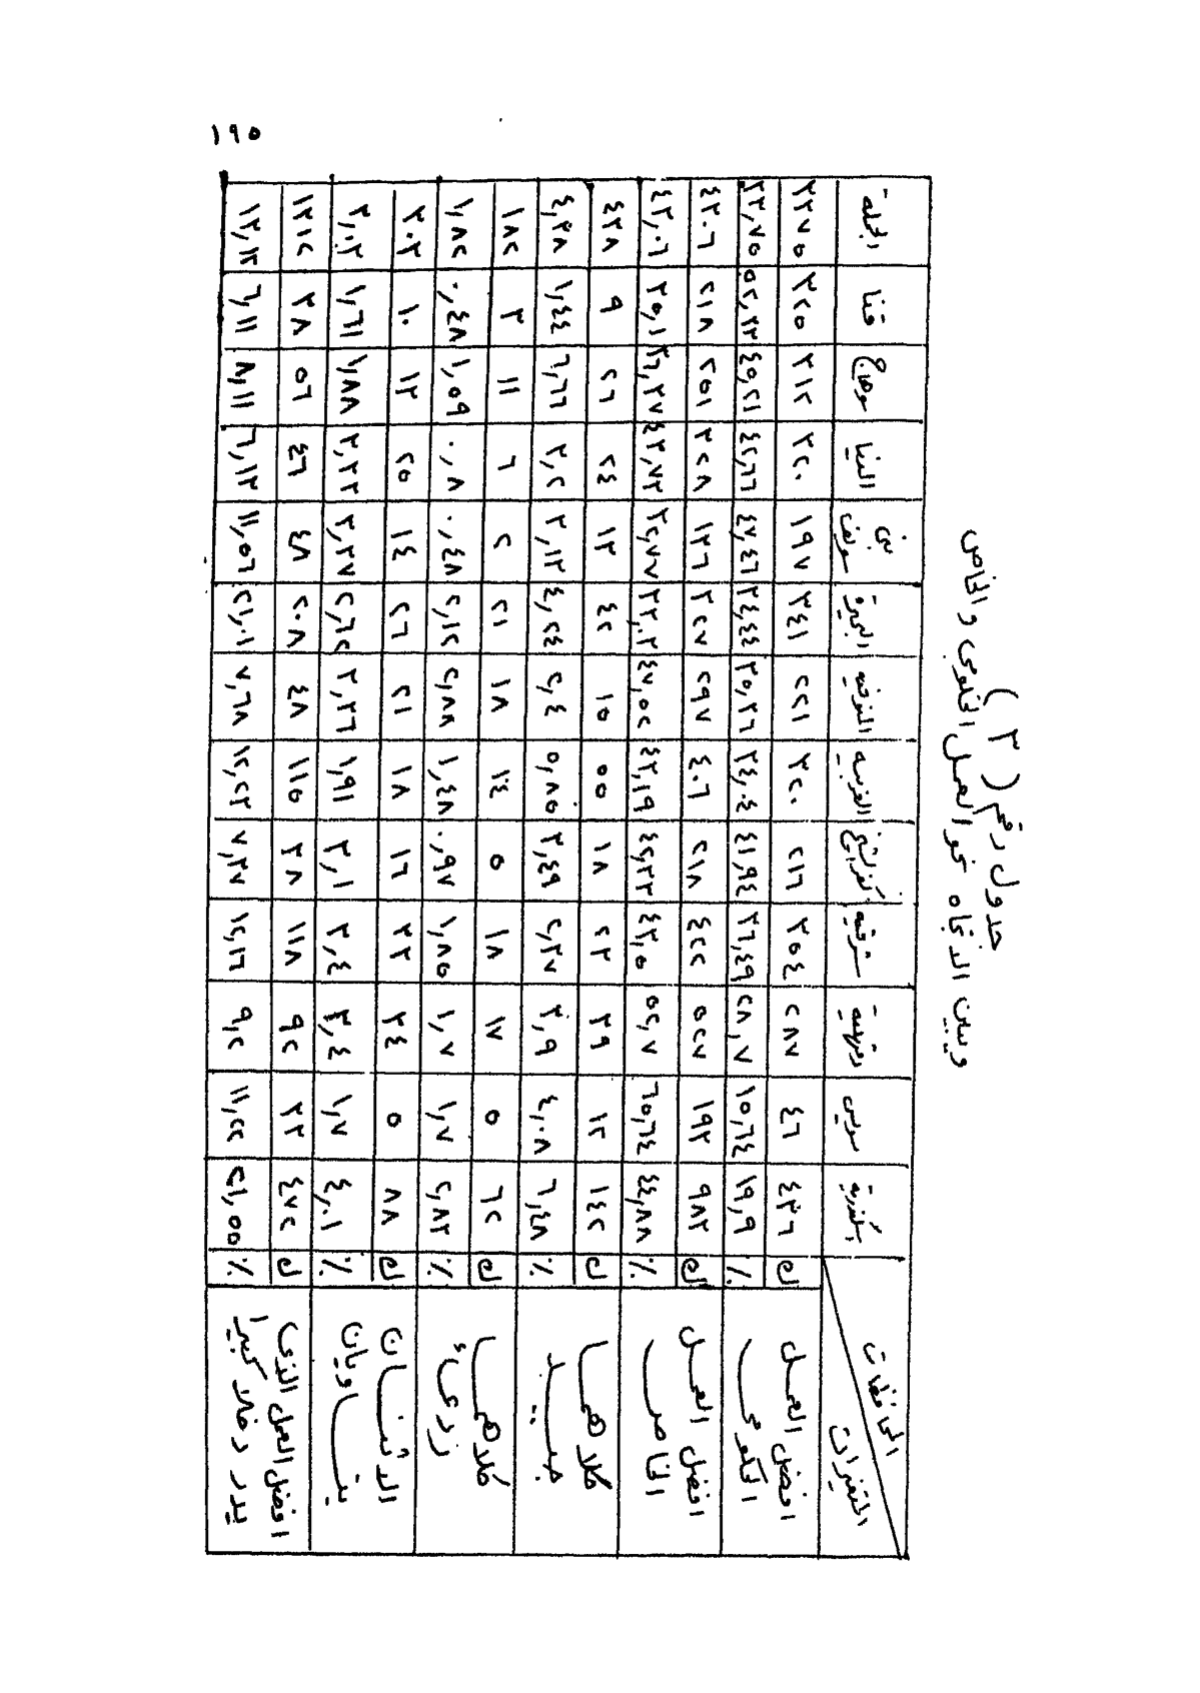 ١٩٥
جدول رقم ( ٣ )
ويبين الاتجاه نحو العمل الحكومى والخاص
المحافظات المتغيرات اسكندرية سويس دقهلية شرقيه كفر الشيخ الغربيه المنوفيه البحيرة بنى سويف المنيا سوهاج قنا الجملة
افضل العمل الحكومى ك ٤٣٦ ٤٦ ٢٨٧ ٣٥٤ ٢١٦ ٣٢٠ ٢٢١ ٣٤١ ١٩٧ ٣٢٠ ٣١٢ ٣٢٥ ٣٣٧٥
٪ ١٩,٩ ١٥,٦٤ ٢٨,٧ ٣٦,٤٩ ٤١,٩٤ ٣٤,٠٤ ٣٥,٣٦ ٣٤,٤٤ ٤٧,٤٦ ٤٢,٦٦ ٤٥,٢١ ٥٢,٣٣ ٣٣,٧٥
افضل العمل الخاص ك ٩٨٣ ١٩٣ ٥٢٧ ٤٢٢ ٢١٨ ٤٠٦ ٢٩٧ ٣٢٧ ١٣٦ ٣٢٨ ٢٥١ ٢١٨ ٤٣٠٦
٪ ٤٤,٨٨ ٦٥,٦٤ ٥٢,٧ ٤٣,٥ ٤٢,٣٣ ٤٣,١٩ ٤٧,٥٢ ٣٣,٠٣ ٣٢,٧٧ ٤٣,٧٣ ٣٦,٣٧ ٣٥,١ ٤٣,٠٦
كلاهما جيد ك ١٤٢ ١٢ ٣٩ ٢٣ ١٨ ٥٥ ١٥ ٤٢ ١٣ ٢٤ ٢٦ ٩ ٤٣٨
٪ ٦,٤٨ ٤,٠٨ ٣,٩ ٢,٣٧ ٣,٤٩ ٥,٨٥ ٢,٤ ٤,٢٤ ٣,١٣ ٣,٢ ٦,٦٦ ١,٤٤ ٤,٣٨
كلاهما ردىء ك ٦٢ ٥ ١٧ ١٨ ٥ ١٤ ١٨ ٢١ ٢ ٦ ١١ ٣ ١٨٢
٪ ٢,٨٣ ١,٧ ١,٧ ١,٨٥ ٠,٩٧ ١,٤٨ ٢,٨٨ ٢,١٢ ٠,٤٨ ٠,٨ ١,٥٩ ٠,٤٨ ١,٨٢
الاثنان يتساويان ك ٨٨ ٥ ٣٤ ٣٣ ١٦ ١٨ ٢١ ٢٦ ١٤ ٢٥ ١٣ ١٠ ٣٠٣
٪ ٤,٠١ ١,٧ ٣,٤ ٣,٤ ٣,١ ١,٩١ ٣,٣٦ ٢,٦٢ ٣,٣٧ ٣,٣٣ ١,٨٨ ١,٦١ ٣,٠٣
افضل العمل الذى يدر دخلا كبيرا ك ٤٧٢ ٣٣ ٩٢ ١١٨ ٣٨ ١١٥ ٤٨ ٢٠٨ ٤٨ ٤٦ ٥٦ ٣٨ ١٣١٢
٪ ٢١,٥٥ ١١,٢٢ ٩,٢ ١٢,١٦ ٧,٣٧ ١٢,٢٣ ٧,٦٨ ٢١,٠١ ١١,٥٦ ٦,١٣ ٨,١١ ٦,١١ ١٣,١٢